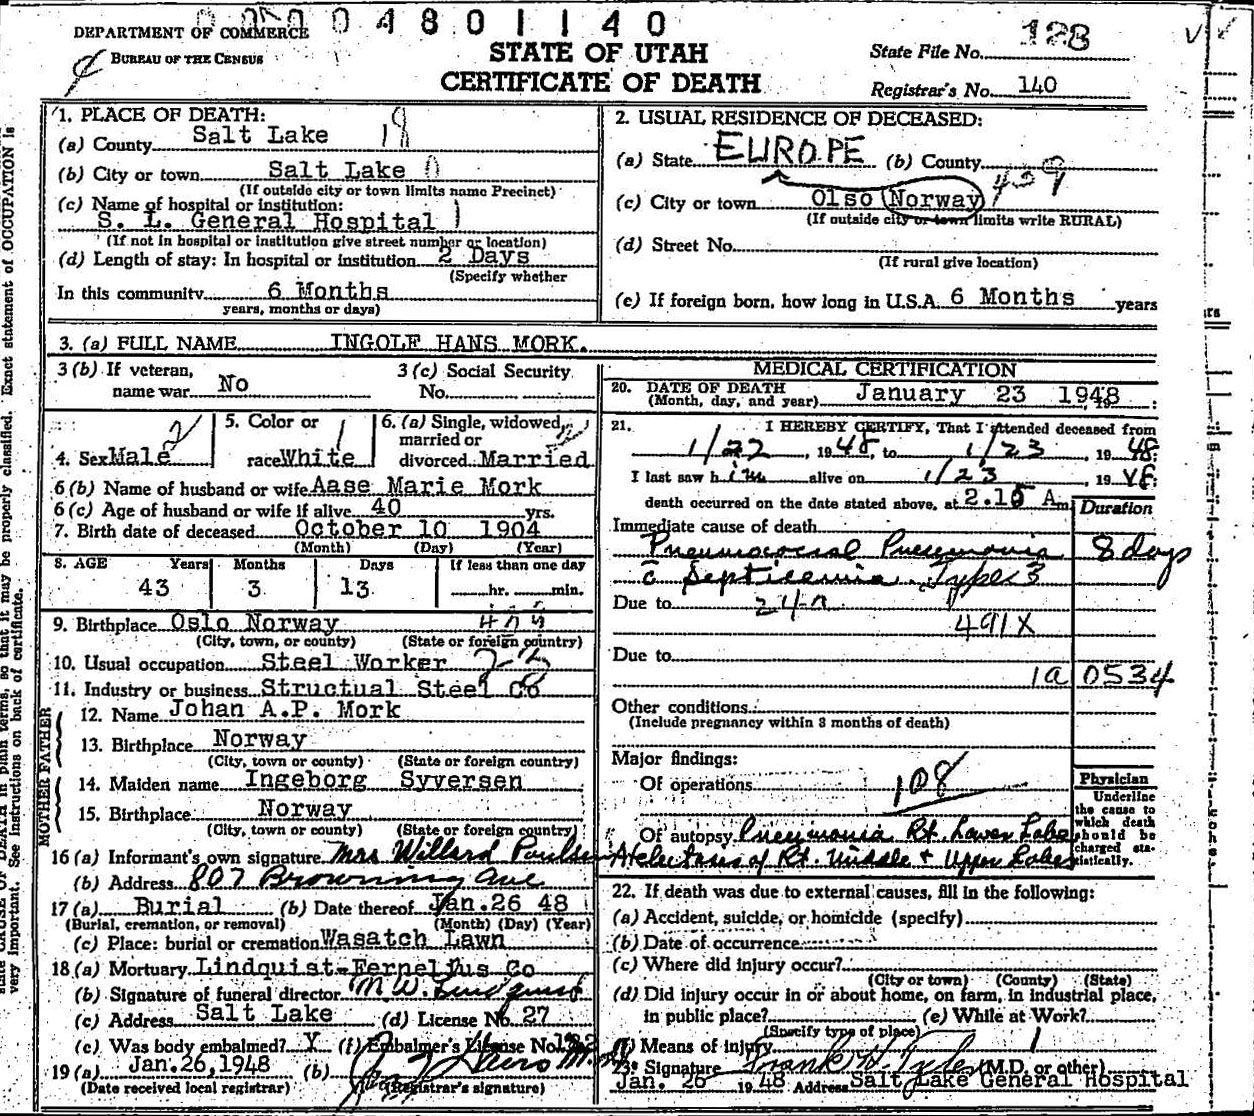 0004801140
DEPARTMENT OF COMMERCE
BUREAU OF THE CENSUS
STATE OF UTAH
CERTIFICATE OF DEATH
State File No. 128
Registrar's No. 140
1. PLACE OF DEATH:
(a) County Salt Lake
(b) City or town Salt Lake
(If outside city or town limits name Precinct)
(c) Name of hospital or institution:
S. L. General Hospital
(If not in hospital or institution give street number or location)
(d) Length of stay: In hospital or institution 2 Days
(Specify whether
In this community 6 Months
years, months or days)
2. USUAL RESIDENCE OF DECEASED:
(a) State EUROPE (b) County
(c) City or town Olso Norway
(If outside city or town limits write RURAL)
(d) Street No.
(If rural give location)
(e) If foreign born, how long in U.S.A. 6 Months years
3. (a) FULL NAME INGOLF HANS MORK.
3 (b) If veteran, name war No
3 (c) Social Security No.
4. Sex Male
5. Color or race White
6. (a) Single, widowed, married or divorced Married
6 (b) Name of husband or wife Aase Marie Mork
6 (c) Age of husband or wife if alive 40 yrs.
7. Birth date of deceased October 10 1904
(Month) (Day) (Year)
8. AGE Years Months Days If less than one day
43 3 13 hr. min.
9. Birthplace Oslo Norway
(City, town, or county) (State or foreign country)
10. Usual occupation Steel Worker
11. Industry or business Structual Steel Co
FATHER
12. Name Johan A.P. Mork
13. Birthplace Norway
(City, town or county) (State or foreign country)
MOTHER
14. Maiden name Ingeborg Syversen
15. Birthplace Norway
(City, town or county) (State or foreign country)
16 (a) Informant's own signature Mrs Willard Poulsen
(b) Address 807 Browning Ave
17 (a) Burial (b) Date thereof Jan. 26 48
(Burial, cremation, or removal) (Month) (Day) (Year)
(c) Place: burial or cremation Wasatch Lawn
18 (a) Mortuary Lindquist-Fernelius Co
(b) Signature of funeral director M. W. Lindquist
(c) Address Salt Lake (d) License No. 27
(e) Was body embalmed? Y (f) Embalmer's License No.
19 (a) Jan. 26, 1948 (b)
(Date received local registrar) (Registrar's signature)
MEDICAL CERTIFICATION
20. DATE OF DEATH
(Month, day, and year) January 23 1948
21. I HEREBY CERTIFY, That I attended deceased from
1/22, 1948, to 1/23, 1948;
I last saw him alive on 1/23, 1948;
death occurred on the date stated above, at 2.15 A m.
Duration
Immediate cause of death
Pneumococcal Pneumonia 8 days
c̄ Septicemia Type 3
Due to
491X
Due to
1a 0534
Other conditions
(Include pregnancy within 3 months of death)
Major findings:
Of operations 108
Of autopsy Pneumonia Rt. Lower Lobe
Atelectasis of Rt. Middle + Upper Lobes
Physician
Underline the cause to which death should be charged statistically.
22. If death was due to external causes, fill in the following:
(a) Accident, suicide, or homicide (specify)
(b) Date of occurrence
(c) Where did injury occur?
(City or town) (County) (State)
(d) Did injury occur in or about home, on farm, in industrial place,
in public place? (e) While at Work?
(Specify type of place)
(f) Means of injury
23. Signature Frank H. Tyler (M.D. or other)
Jan. 26 1948 Address Salt Lake General Hospital